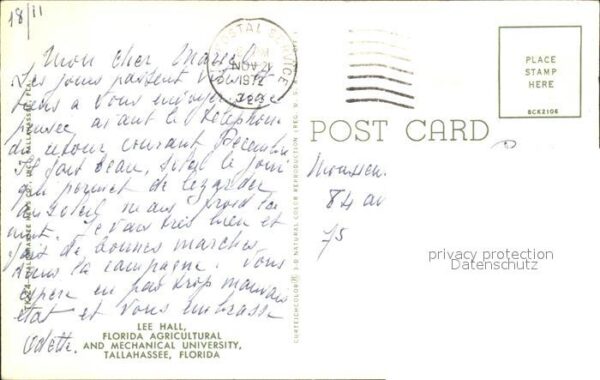 18/11
Mon cher Marcel
Les jours passent vite et
tiens à vous envoyer une
pensée avant le téléphone
du retour courant Décembre
Il fait beau, soleil le jour
qui permet de lézarder
au soleil mais froid la
nuit. Je vais très bien et
fait de bonnes marches
dans la campagne. Vous
espère en pas trop mauvais
état et vous embrasse
Odette.
POSTAL SERVICE
PM
NOV 21
1972
323
PLACE
STAMP
HERE
SCK2106
POST CARD
Monsieu
84 av
75
privacy protection
Datenschutz
CURTEICHCOLOR® 3-D NATURAL COLOR REPRODUCTION (REG. U.S.
TALLAHASSEE, FLA.
LEE HALL,
FLORIDA AGRICULTURAL
AND MECHANICAL UNIVERSITY,
TALLAHASSEE, FLORIDA